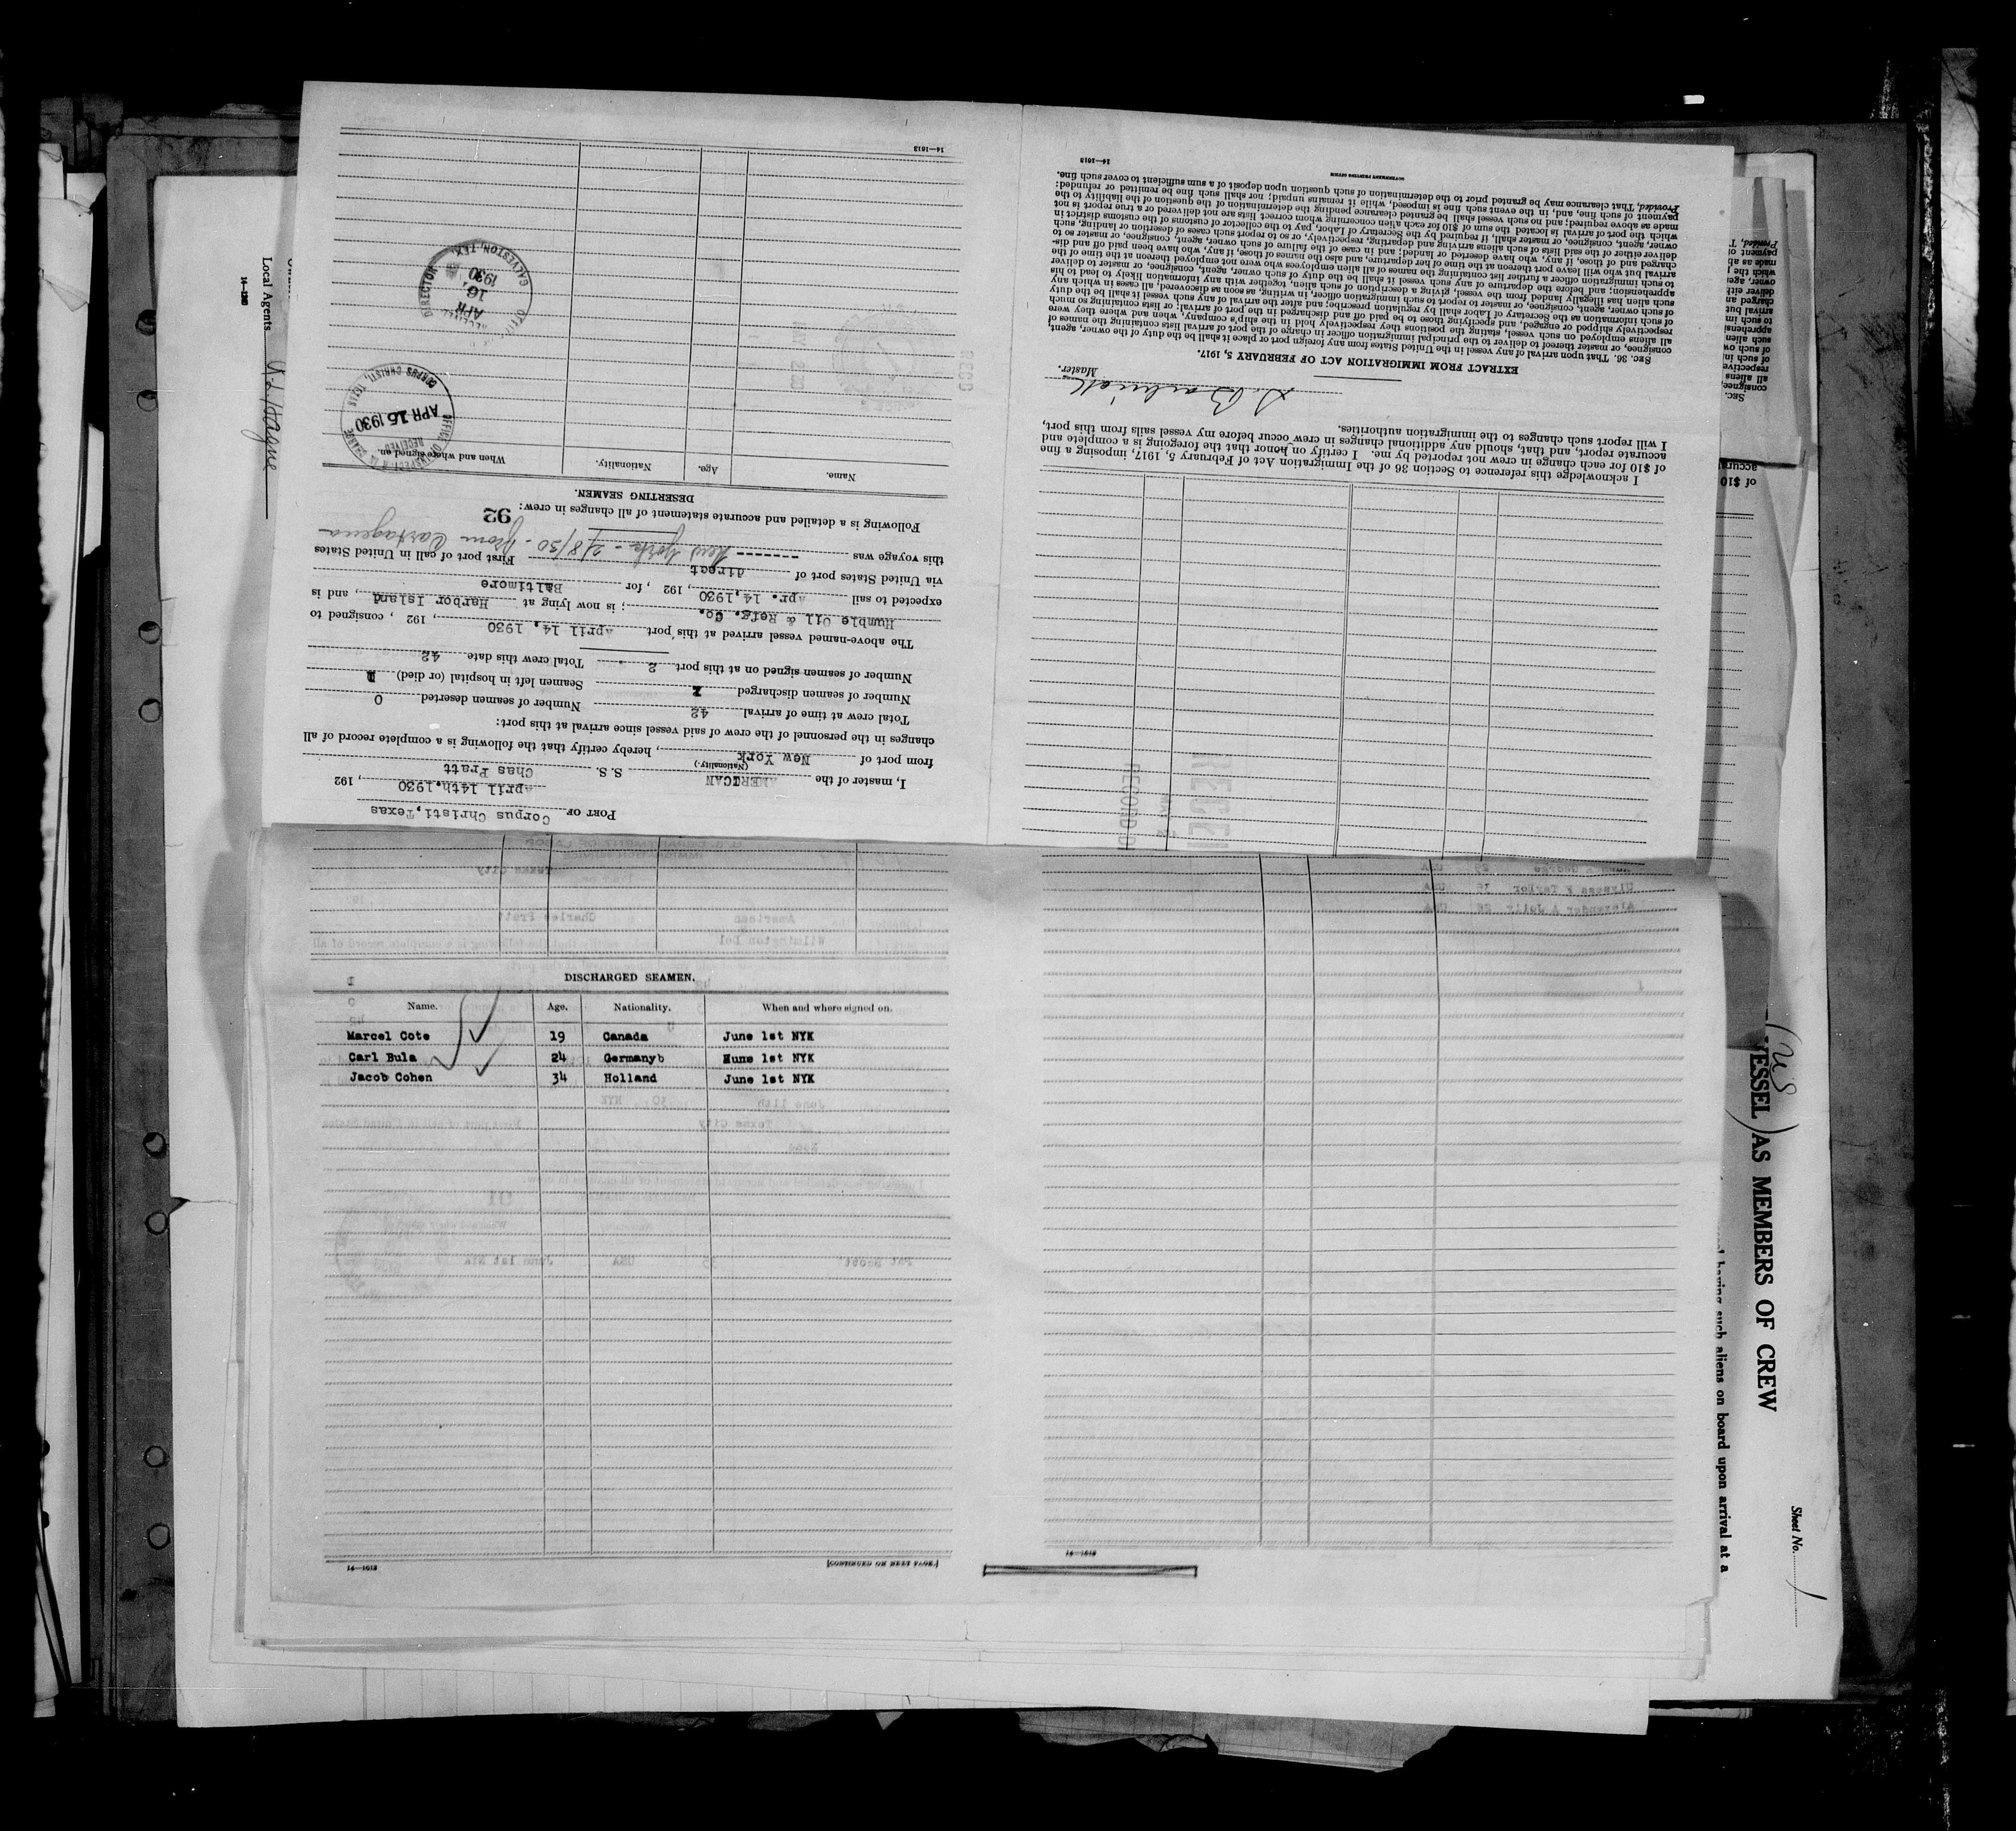 PORT OF Corpus Christi, Texas
April 14th. 1930, 192
I, master of the AMERICAN S. S. Chas Pratt
(Nationality.)
from port of New York, hereby certify that the following is a complete record of all
changes in the personnel of the crew of said vessel since arrival at this port:
Total crew at time of arrival 42 Number of seamen deserted 0
Number of seamen discharged Seamen left in hospital (or died)
Number of seamen signed on at this port 2 Total crew this date 42
The above-named vessel arrived at this port April 14, 1930, 192 , consigned to
Humble Oil & Refg. Co.; is now lying at Harbor Island, and is
expected to sail Apr. 14,1930, 192 , for Baltimore
via United States port of direct First port of call in United States
this voyage was ------- New York - 2/8/30 - from Cartagena
Following is a detailed and accurate statement of all changes in crew: 92
DESERTING SEAMEN.
Name. Age. Nationality. When and where signed on.
OFFICE OF INSPECTOR IN CHARGE
RECEIVED
APR 15 1930
CORPUS CHRISTI, TEXAS
RECEIVED
APR
16
1930
DIRECTOR
GALVESTON, TEX.
14—1613
I acknowledge this reference to Section 36 of the Immigration Act of February 5, 1917, imposing a fine
of $10 for each change in crew not reported by me. I certify on honor that the foregoing is a complete and
accurate report, and that, should any additional changes in crew occur before my vessel sails from this port,
I will report such changes to the immigration authorities.
Master.
EXTRACT FROM IMMIGRATION ACT OF FEBRUARY 5, 1917.
SEC. 36. That upon arrival of any vessel in the United States from any foreign port or place it shall be the duty of the owner, agent,
consignee, or master thereof to deliver to the principal immigration officer in charge of the port of arrival lists containing the names of
all aliens employed on such vessel, stating the positions they respectively hold in the ship's company, when and where they were
respectively shipped or engaged, and specifying those to be paid off and discharged in the port of arrival; or lists containing so much
of such information as the Secretary of Labor shall by regulation prescribe; and after the arrival of any such vessel it shall be the duty
of such owner, agent, consignee, or master to report to such immigration officer, in writing, as soon as discovered, all cases in which any
such alien has illegally landed from the vessel, giving a description of such alien, together with any information likely to lead to his
apprehension; and before the departure of any such vessel it shall be the duty of such owner, agent, consignee, or master to deliver
to such immigration officer a further list containing the names of all alien employees who were not employed thereon at the time of the
arrival but who will leave port thereon at the time of her departure, and also the names of those, if any, who have been paid off and dis-
charged and of those, if any, who have deserted or landed; and in case of the failure of such owner, agent, consignee, or master so to
deliver either of the said lists of such aliens arriving and departing, respectively, or so to report such cases of desertion or landing, such
owner, agent, consignee, or master shall, if required by the Secretary of Labor, pay to the collector of customs of the customs district in
which the port of arrival is located the sum of $10 for each alien concerning whom correct lists are not delivered or a true report is not
made as above required; and no such vessel shall be granted clearance pending the determination of the question of the liability to the
payment of such fine, and, in the event such fine is imposed, while it remains unpaid; nor shall such fine be remitted or refunded:
Provided, That clearance may be granted prior to the determination of such question upon deposit of a sum sufficient to cover such fine.
GOVERNMENT PRINTING OFFICE
14—1613
DISCHARGED SEAMEN.
Name. Age. Nationality. When and where signed on.
Marcel Cote 19 Canada June 1st NYK
Carl Bula 24 Germanyb June 1st NYK
Jacob Cohen 34 Holland June 1st NYK
14—1613 [CONTINUED ON NEXT PAGE.]
14—1613
Local Agents
14—1280
(US)
VESSEL) AS MEMBERS OF CREW
having such aliens on board upon arrival at a
Sheet No. 1